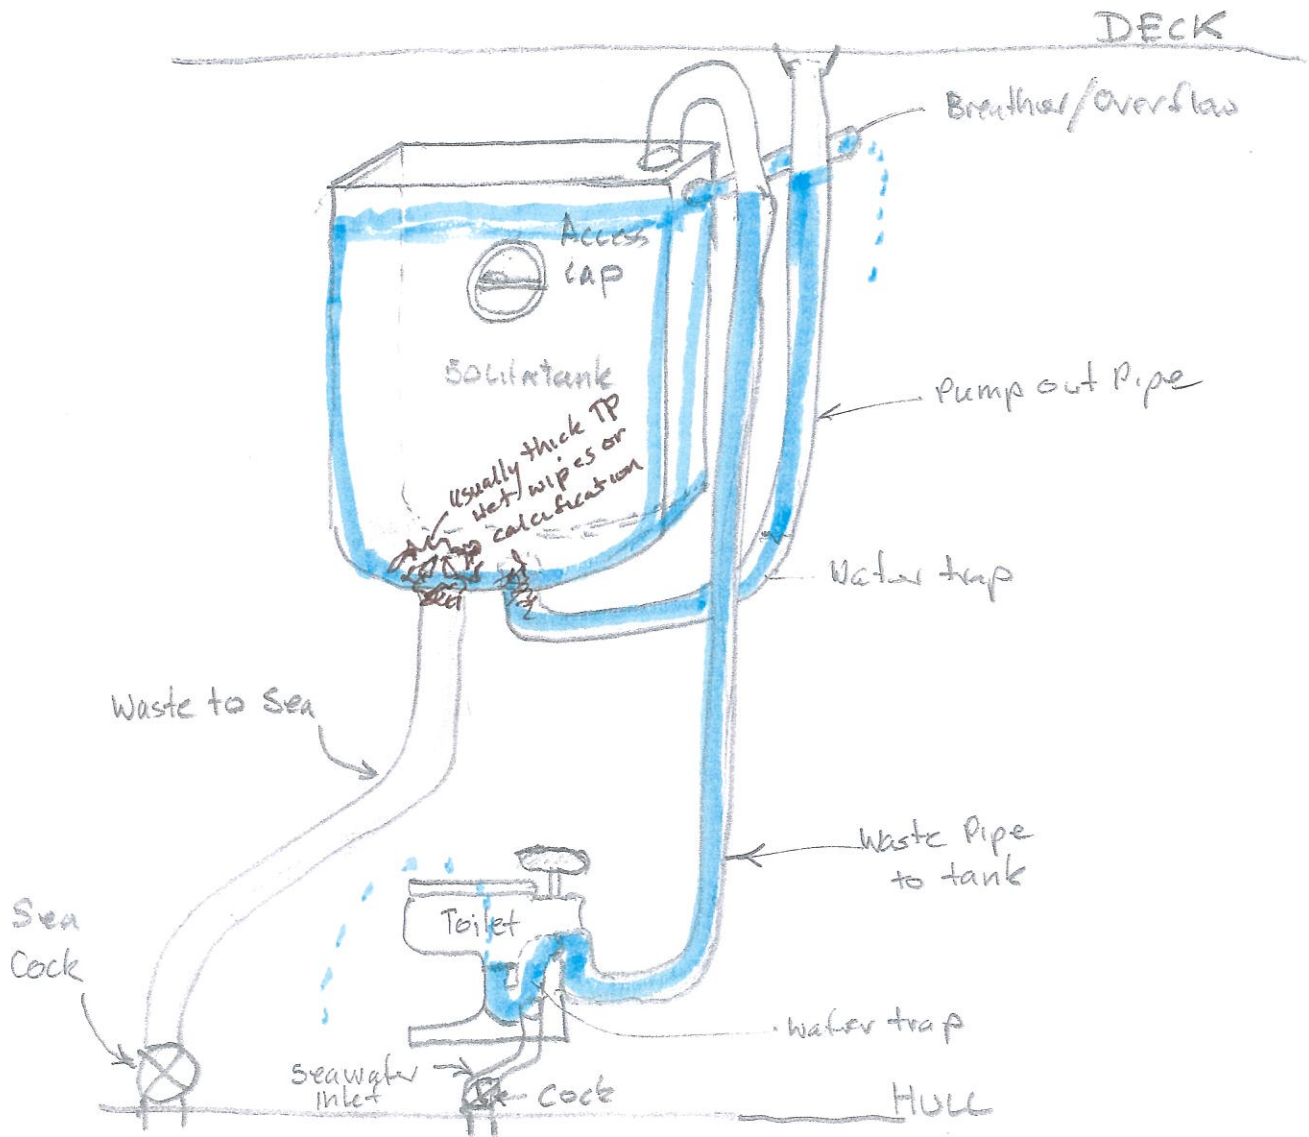 DECK
Breather/Overflow
Access
Cap
50 Litre tank
usually thick TP
wet wipes or
calcification
Pump out Pipe
Water trap
Waste to Sea
Waste Pipe
to tank
Sea
Cock
Toilet
water trap
Seawater
Inlet
Cock
HULL